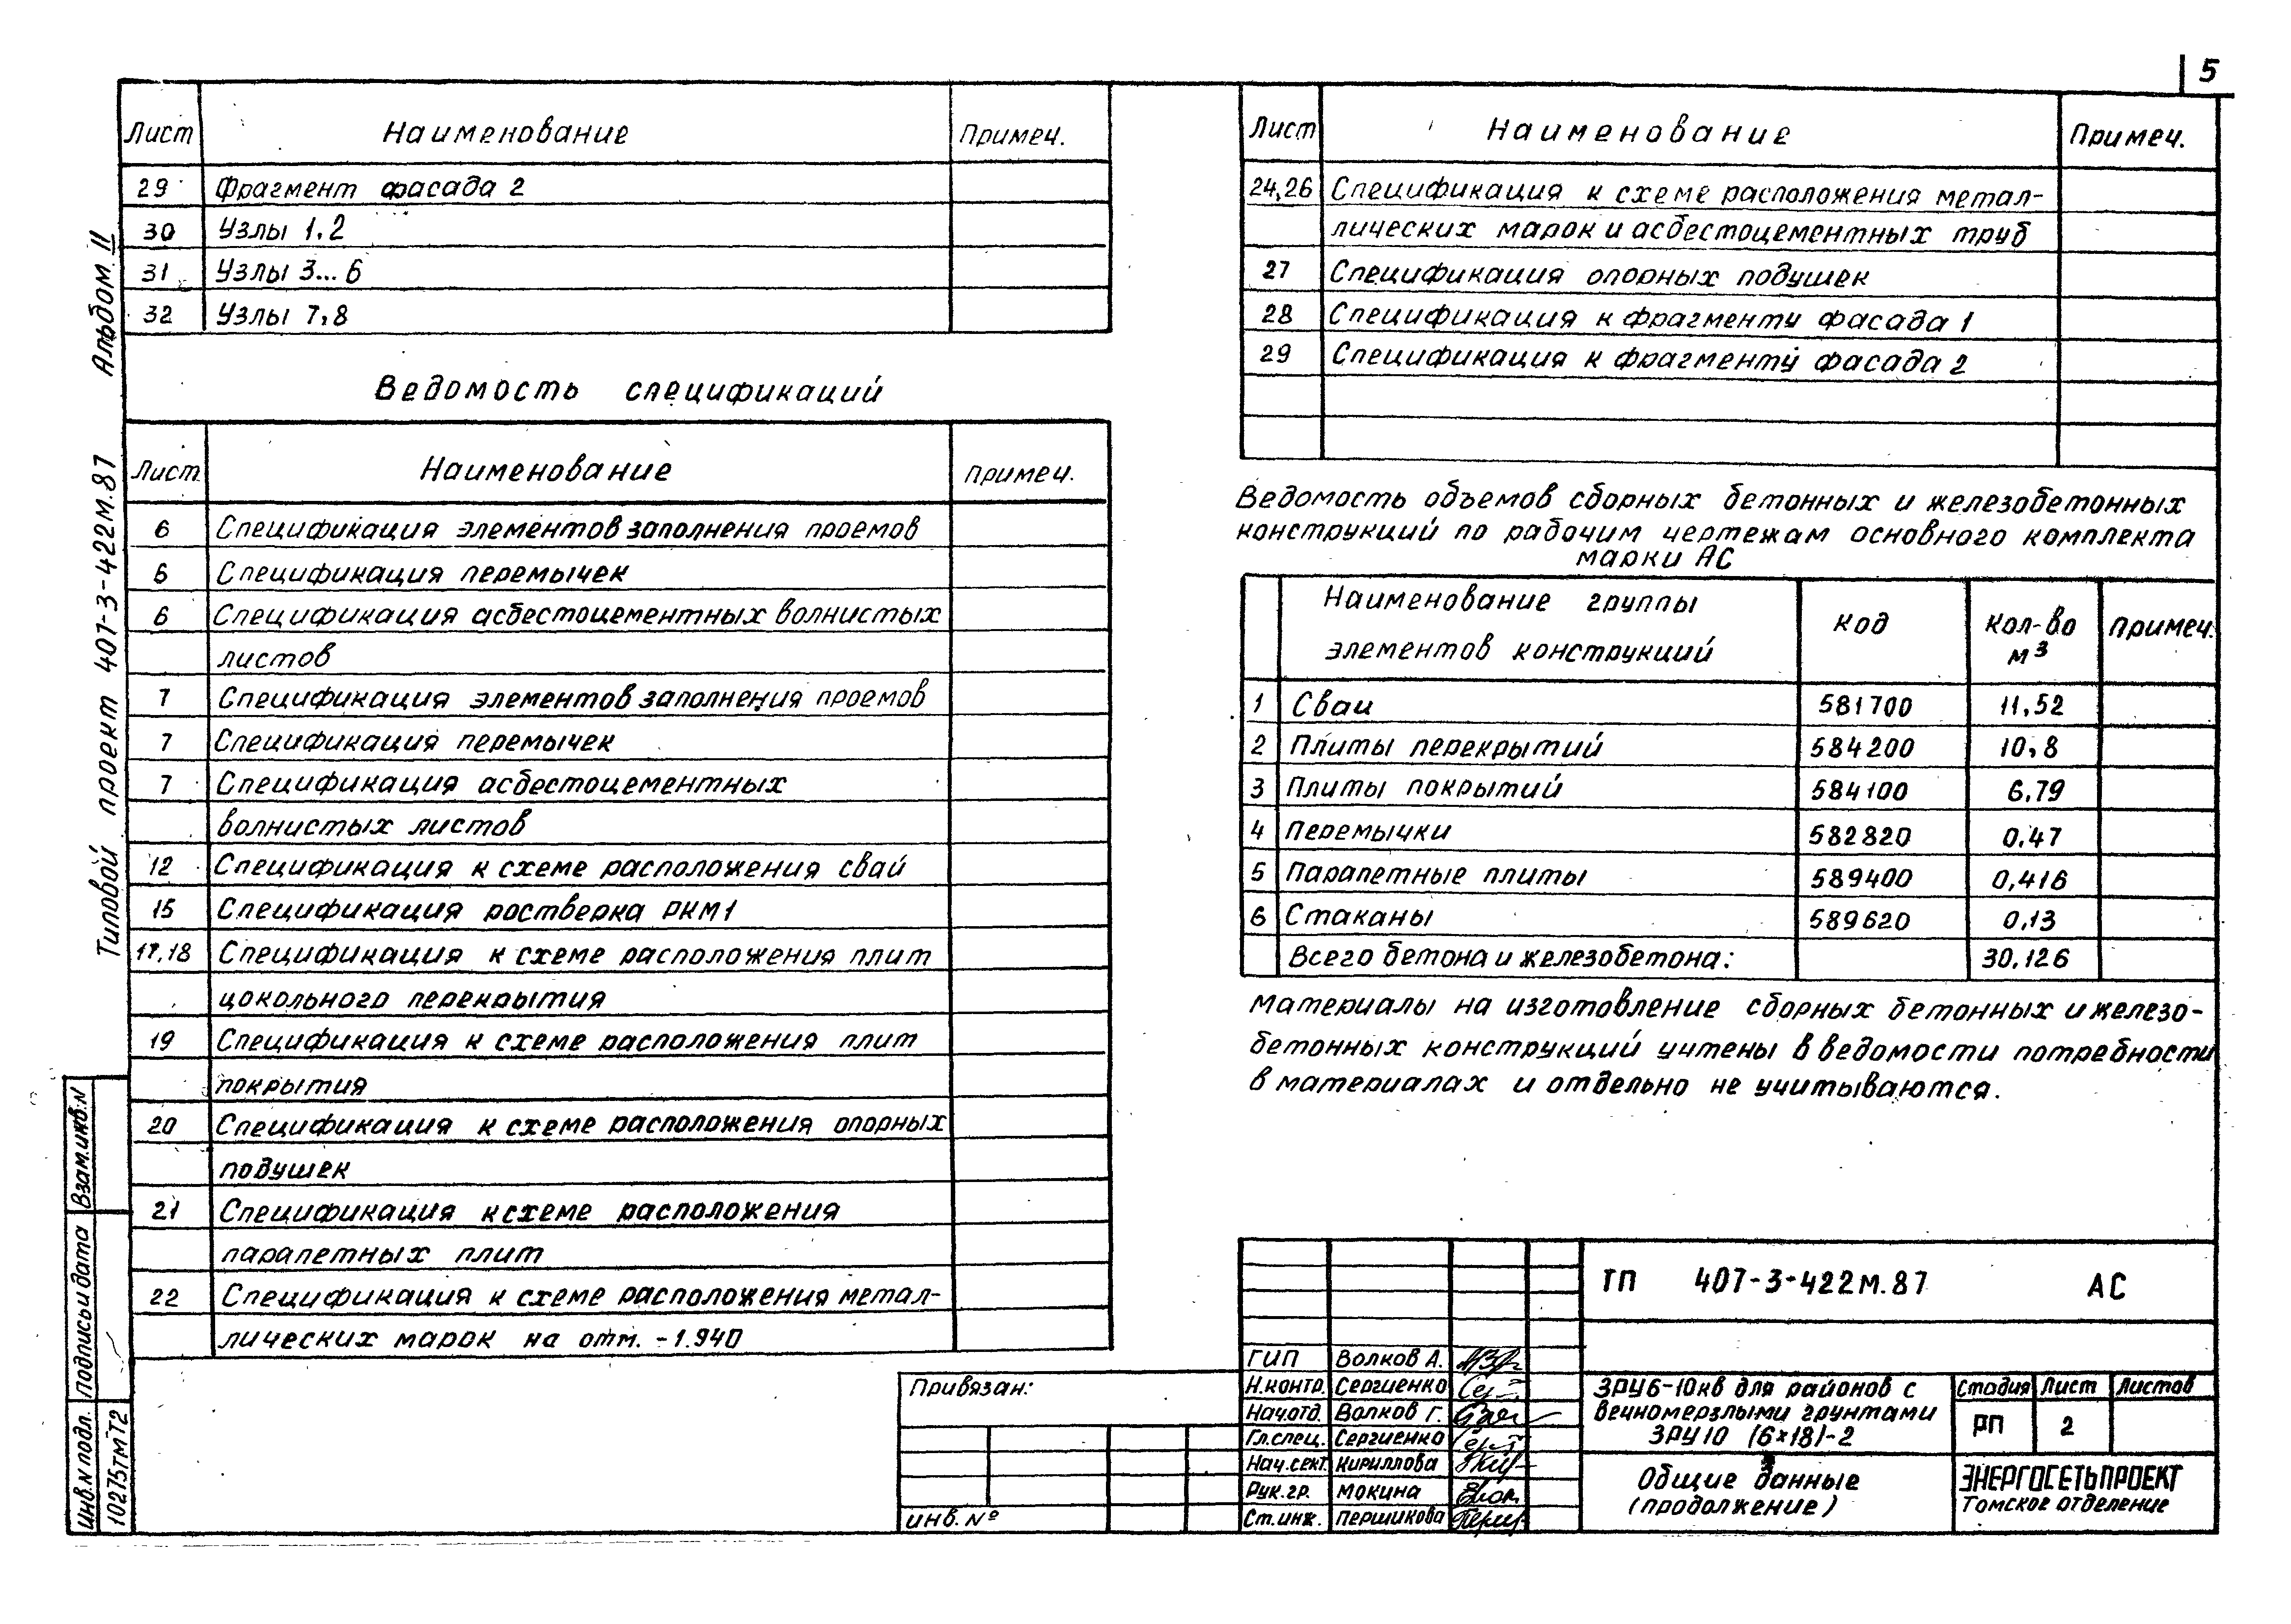 5
Лист Наименование Примеч.
29 Фрагмент фасада 2
30 Узлы 1,2
31 Узлы 3...6
32 Узлы 7,8
Ведомость спецификаций
Лист Наименование Примеч.
6 Спецификация элементов заполнения проемов
6 Спецификация перемычек
6 Спецификация асбестоцементных волнистых
листов
7 Спецификация элементов заполнения проемов
7 Спецификация перемычек
7 Спецификация асбестоцементных
волнистых листов
12 Спецификация к схеме расположения свай
15 Спецификация ростверка РКМ1
17,18 Спецификация к схеме расположения плит
цокольного перекрытия
19 Спецификация к схеме расположения плит
покрытия
20 Спецификация к схеме расположения опорных
подушек
21 Спецификация к схеме расположения
парапетных плит
22 Спецификация к схеме расположения метал-
лических марок на отм. -1.940
Лист Наименование Примеч.
24,26 Спецификация к схеме расположения метал-
лических марок и асбестоцементных труб
27 Спецификация опорных подушек
28 Спецификация к фрагменту фасада 1
29 Спецификация к фрагменту фасада 2
Ведомость объемов сборных бетонных и железобетонных
конструкций по рабочим чертежам основного комплекта
марки АС
Наименование группы
элементов конструкций
Код
Кол-во
м3
Примеч.
1 Сваи 581700 11,52
2 Плиты перекрытий 584200 10,8
3 Плиты покрытий 584100 6,79
4 Перемычки 582820 0,47
5 Парапетные плиты 589400 0,416
6 Стаканы 589620 0,13
Всего бетона и железобетона: 30,126
Материалы на изготовление сборных бетонных и железо-
бетонных конструкций учтены в ведомости потребности
в материалах и отдельно не учитываются.
Альбом II
Типовой проект 407-3-422м.87
Взам.инв.N
Подпись и дата
Инв.N подл.
10275тмТ2
Привязан:
инв. №
ТП 407-3-422м.87 АС
ГИП Волков А.
Н.контр. Сергиенко
Нач.отд. Волков Г.
Гл.спец. Сергиенко
Нач.сект. Кириллова
Рук.гр. Мокина
Ст.инж. Першикова
ЗРУ6-10кв для районов с
вечномерзлыми грунтами
ЗРУ10 (6×18)-2
Стадия Лист Листов
РП 2
Общие данные
(продолжение)
ЭНЕРГОСЕТЬПРОЕКТ
Томское отделение